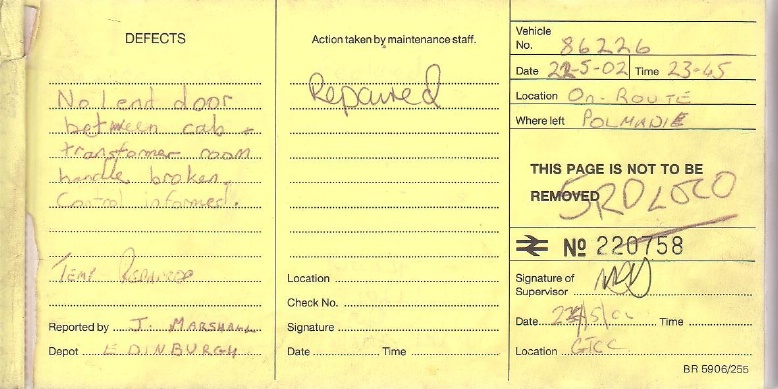 DEFECTS
No 1 end door
between cab +
transformer room
handle broken.
Control informed.
TEMP REPAIRED
Reported by J. MARSHALL
Depot EDINBURGH
Action taken by maintenance staff.
Repaired
Location
Check No.
Signature
Date Time
Vehicle
No. 86226
Date 22-5-02 Time 23-45
Location ON-ROUTE
Where left POLMADIE
THIS PAGE IS NOT TO BE
REMOVED
SRD LOCO
No 220758
Signature of
Supervisor
Date Time
Location GTCC
BR 5906/255